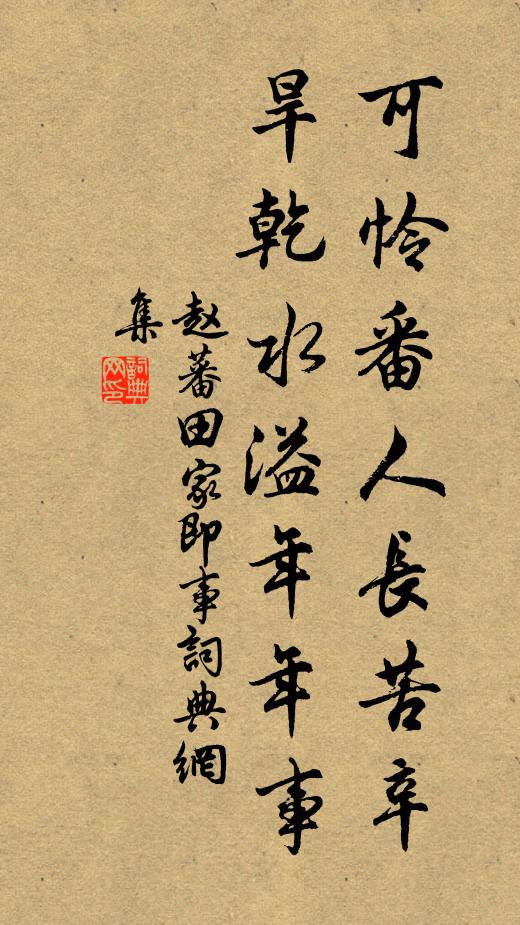 可怜番人長苦辛
旱乾水溢年年事
赵蕃田家即事詞典網
集
詞典網印